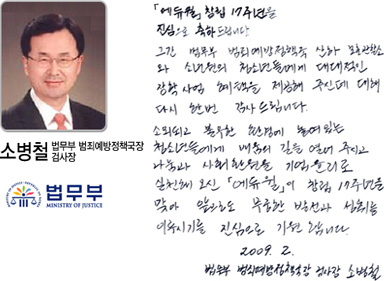 「에듀윌」 창립 17주년을
진심으로 축하드립니다
그간 법무부 범죄예방정책국 산하 보호관찰소
와 소년원의 청소년들에게 대대적인
장학사업 혜택을 제공해 주신데 대해
다시 한번 감사드립니다.
소외되고 불우한 환경에 놓여있는
청소년들에게 배움의 길을 열어 주시고
나눔과 사회환원을 기업윤리로
실천해 오신 「에듀윌」이 창립 17주년을
맞아 앞으로도 무궁한 발전과 성취를
이루시기를 진심으로 기원합니다.
2009. 2.
법무부 범죄예방정책국장 검사장 소병철
소병철 법무부 범죄예방정책국장
검사장
법무부
MINISTRY OF JUSTICE